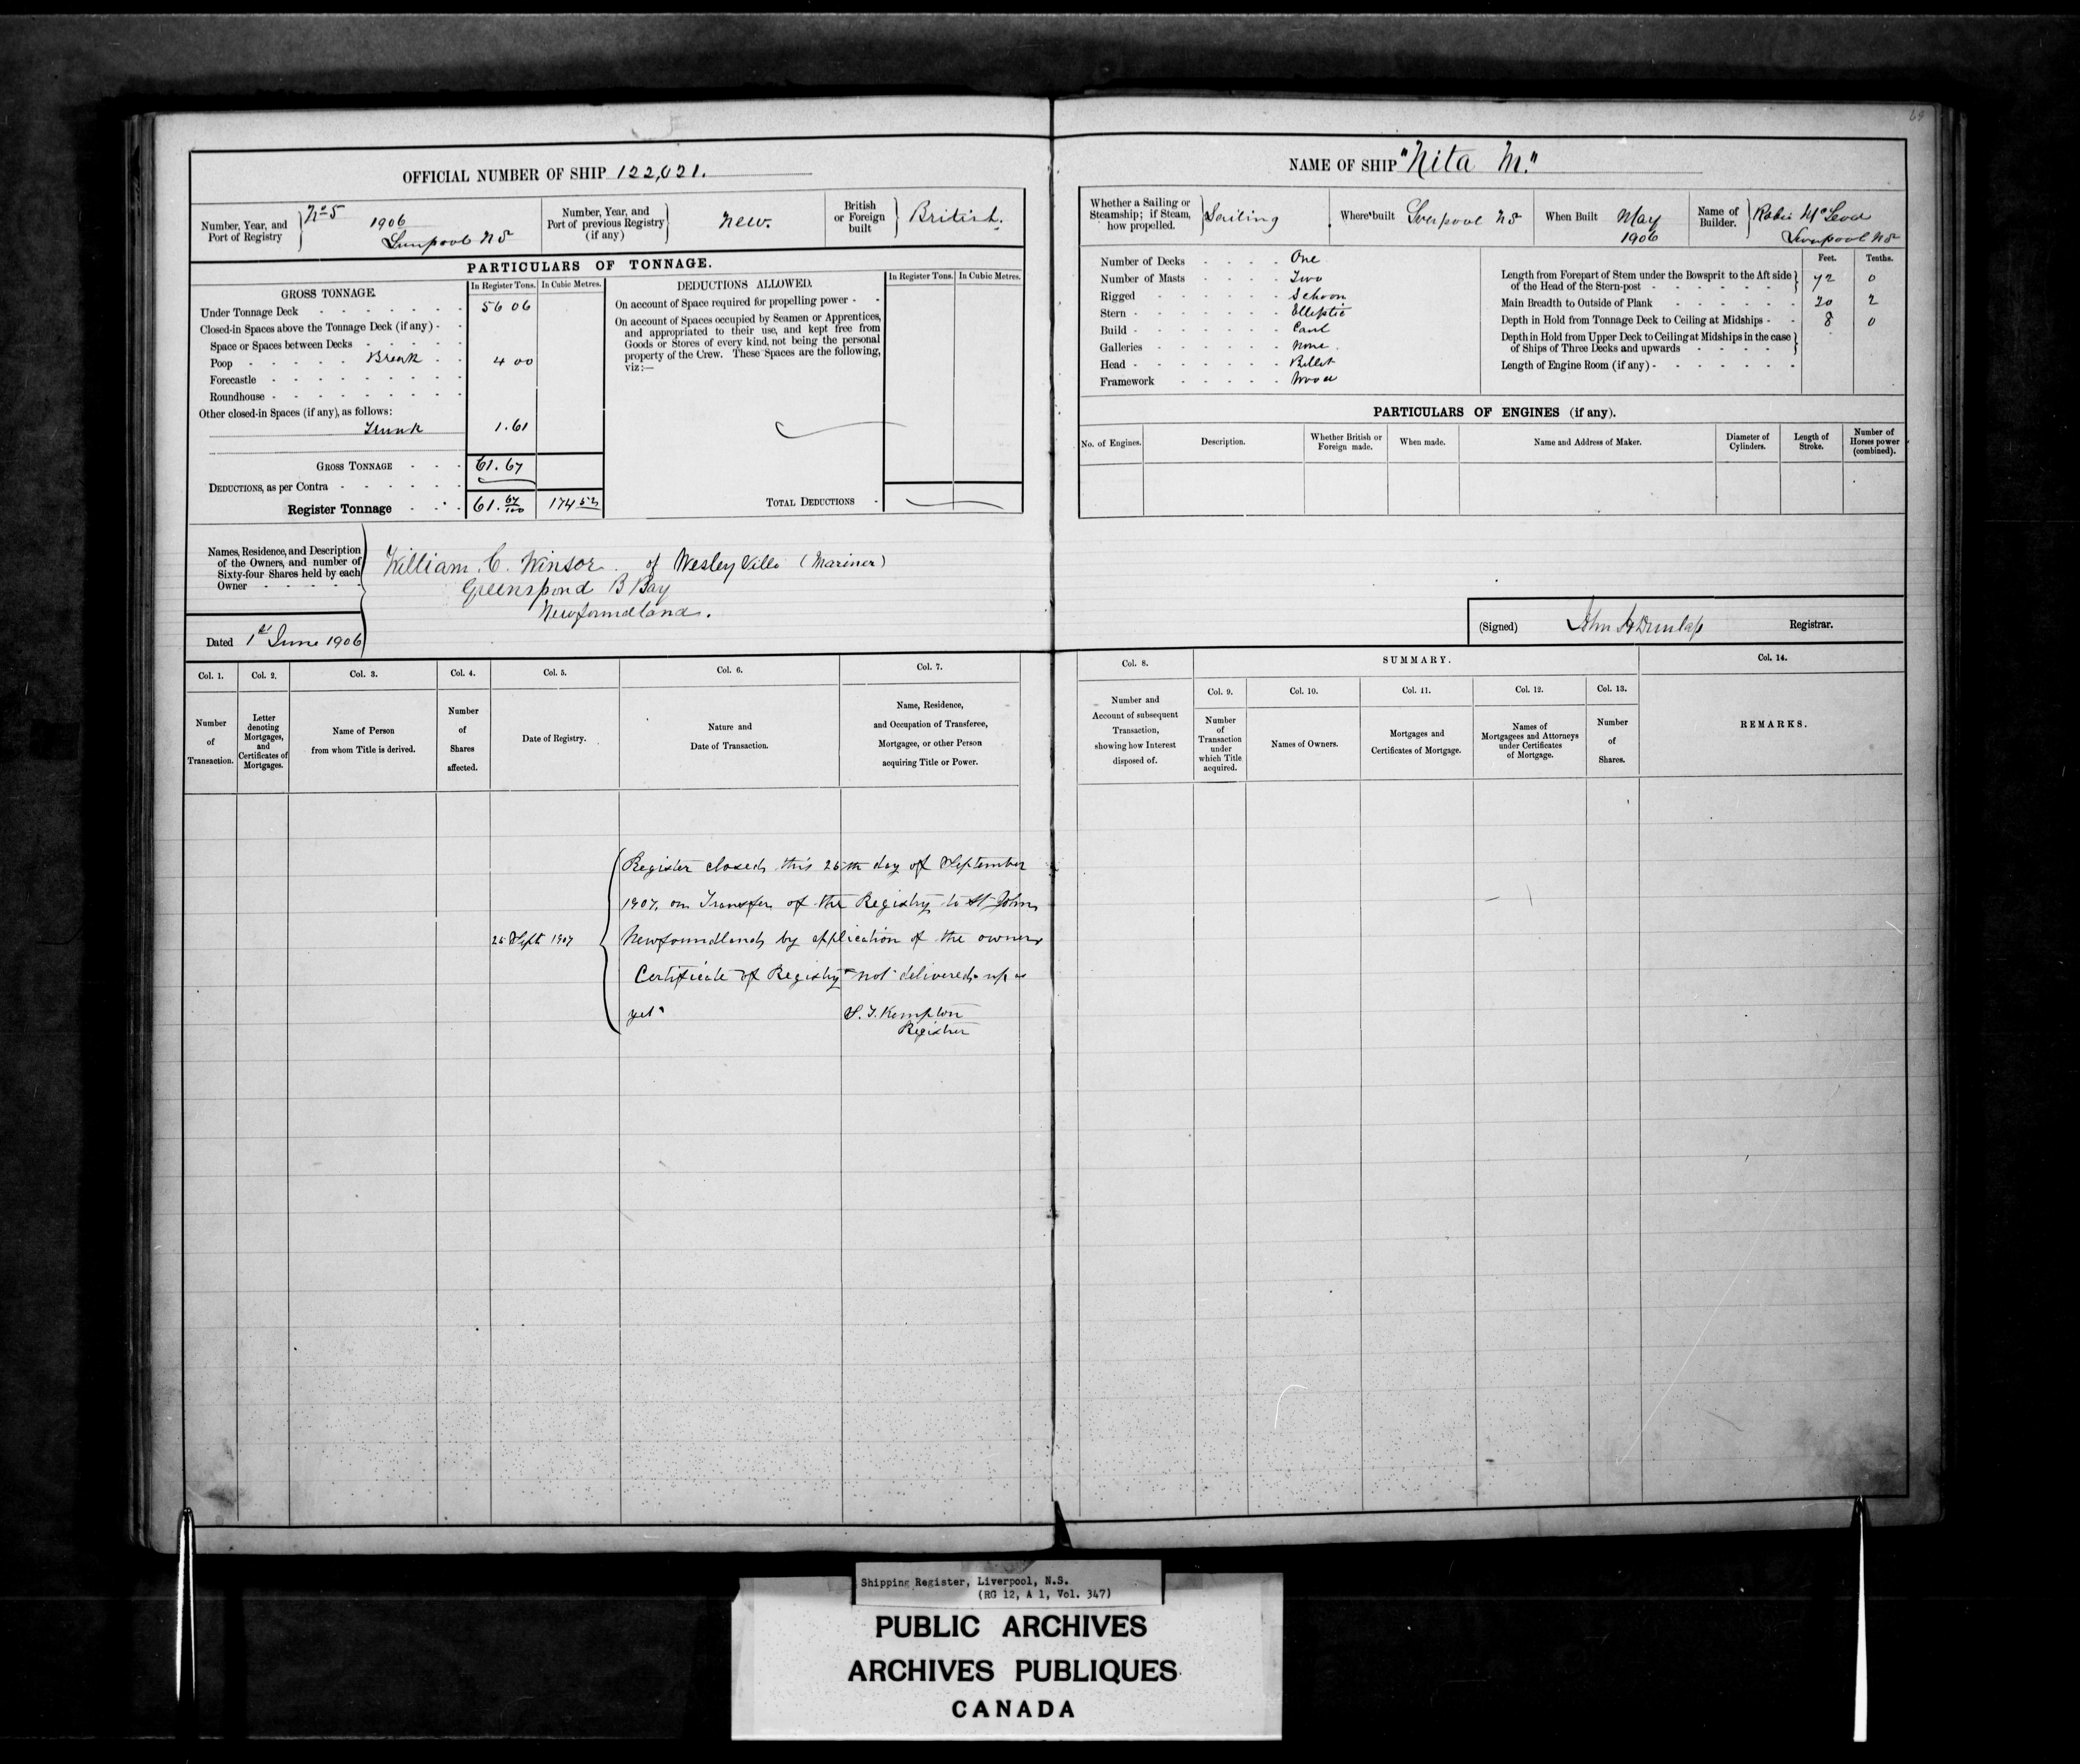 69
OFFICIAL NUMBER OF SHIP 122,021.
Number, Year, and Port of Registry
No 5 1906
Liverpool NS
Number, Year, and Port of previous Registry (if any)
New.
British or Foreign built
British.
PARTICULARS OF TONNAGE.
GROSS TONNAGE.
In Register Tons.
In Cubic Metres.
Under Tonnage Deck 56 06
Closed-in Spaces above the Tonnage Deck (if any)
Space or Spaces between Decks
Poop Break 4 00
Forecastle
Roundhouse
Other closed-in Spaces (if any), as follows:
Trunk 1.61
GROSS TONNAGE 61.67
DEDUCTIONS, as per Contra
Register Tonnage 61. 67/100 174 52
DEDUCTIONS ALLOWED.
In Register Tons.
In Cubic Metres.
On account of Space required for propelling power
On account of Spaces occupied by Seamen or Apprentices,
and appropriated to their use, and kept free from
Goods or Stores of every kind, not being the personal
property of the Crew. These Spaces are the following,
viz:—
TOTAL DEDUCTIONS
Names, Residence, and Description
of the Owners, and number of
Sixty-four Shares held by each
Owner
William C. Winsor of Wesley Ville (Mariner)
Greenspond B Bay
Newfoundland.
Dated 1st June 1906
Col. 1.
Number
of
Transaction.
Col. 2.
Letter
denoting
Mortgages,
and
Certificates of
Mortgages.
Col. 3.
Name of Person
from whom Title is derived.
Col. 4.
Number
of
Shares
affected.
Col. 5.
Date of Registry.
Col. 6.
Nature and
Date of Transaction.
Col. 7.
Name, Residence,
and Occupation of Transferee,
Mortgagee, or other Person
acquiring Title or Power.
25 Sept 1907
Register closed this 25th day of September
1907. on Transfer of the Registry to St Johns
Newfoundland, by application of the owners
Certificate of Registry "not delivered up as
yet"
S. T. Kempton
Registrar
NAME OF SHIP "Nita M."
Whether a Sailing or
Steamship; if Steam,
how propelled.
Sailing
Where built
Liverpool NS
When Built
May
1906
Name of
Builder.
Robie McLeod
Liverpool NS
Number of Decks One
Number of Masts Two
Rigged Schoon
Stern Elliptic
Build Carvl
Galleries None.
Head Billet
Framework Wood
Feet. Tenths.
Length from Forepart of Stem under the Bowsprit to the Aft side
of the Head of the Stern-post 72 0
Main Breadth to Outside of Plank 20 2
Depth in Hold from Tonnage Deck to Ceiling at Midships 8 0
Depth in Hold from Upper Deck to Ceiling at Midships in the case
of Ships of Three Decks and upwards
Length of Engine Room (if any)
PARTICULARS OF ENGINES (if any).
No. of Engines.
Description.
Whether British or
Foreign made.
When made.
Name and Address of Maker.
Diameter of
Cylinders.
Length of
Stroke.
Number of
Horses power
(combined).
(Signed) John H Dunlap Registrar.
Col. 8.
Number and
Account of subsequent
Transaction,
showing how Interest
disposed of.
SUMMARY.
Col. 9.
Number
of
Transaction
under
which Title
acquired.
Col. 10.
Names of Owners.
Col. 11.
Mortgages and
Certificates of Mortgage.
Col. 12.
Names of
Mortgagees and Attorneys
under Certificates
of Mortgage.
Col. 13.
Number
of
Shares.
Col. 14.
REMARKS.
Shipping Register, Liverpool, N.S.
(RG 12, A 1, Vol. 347)
PUBLIC ARCHIVES
ARCHIVES PUBLIQUES
CANADA